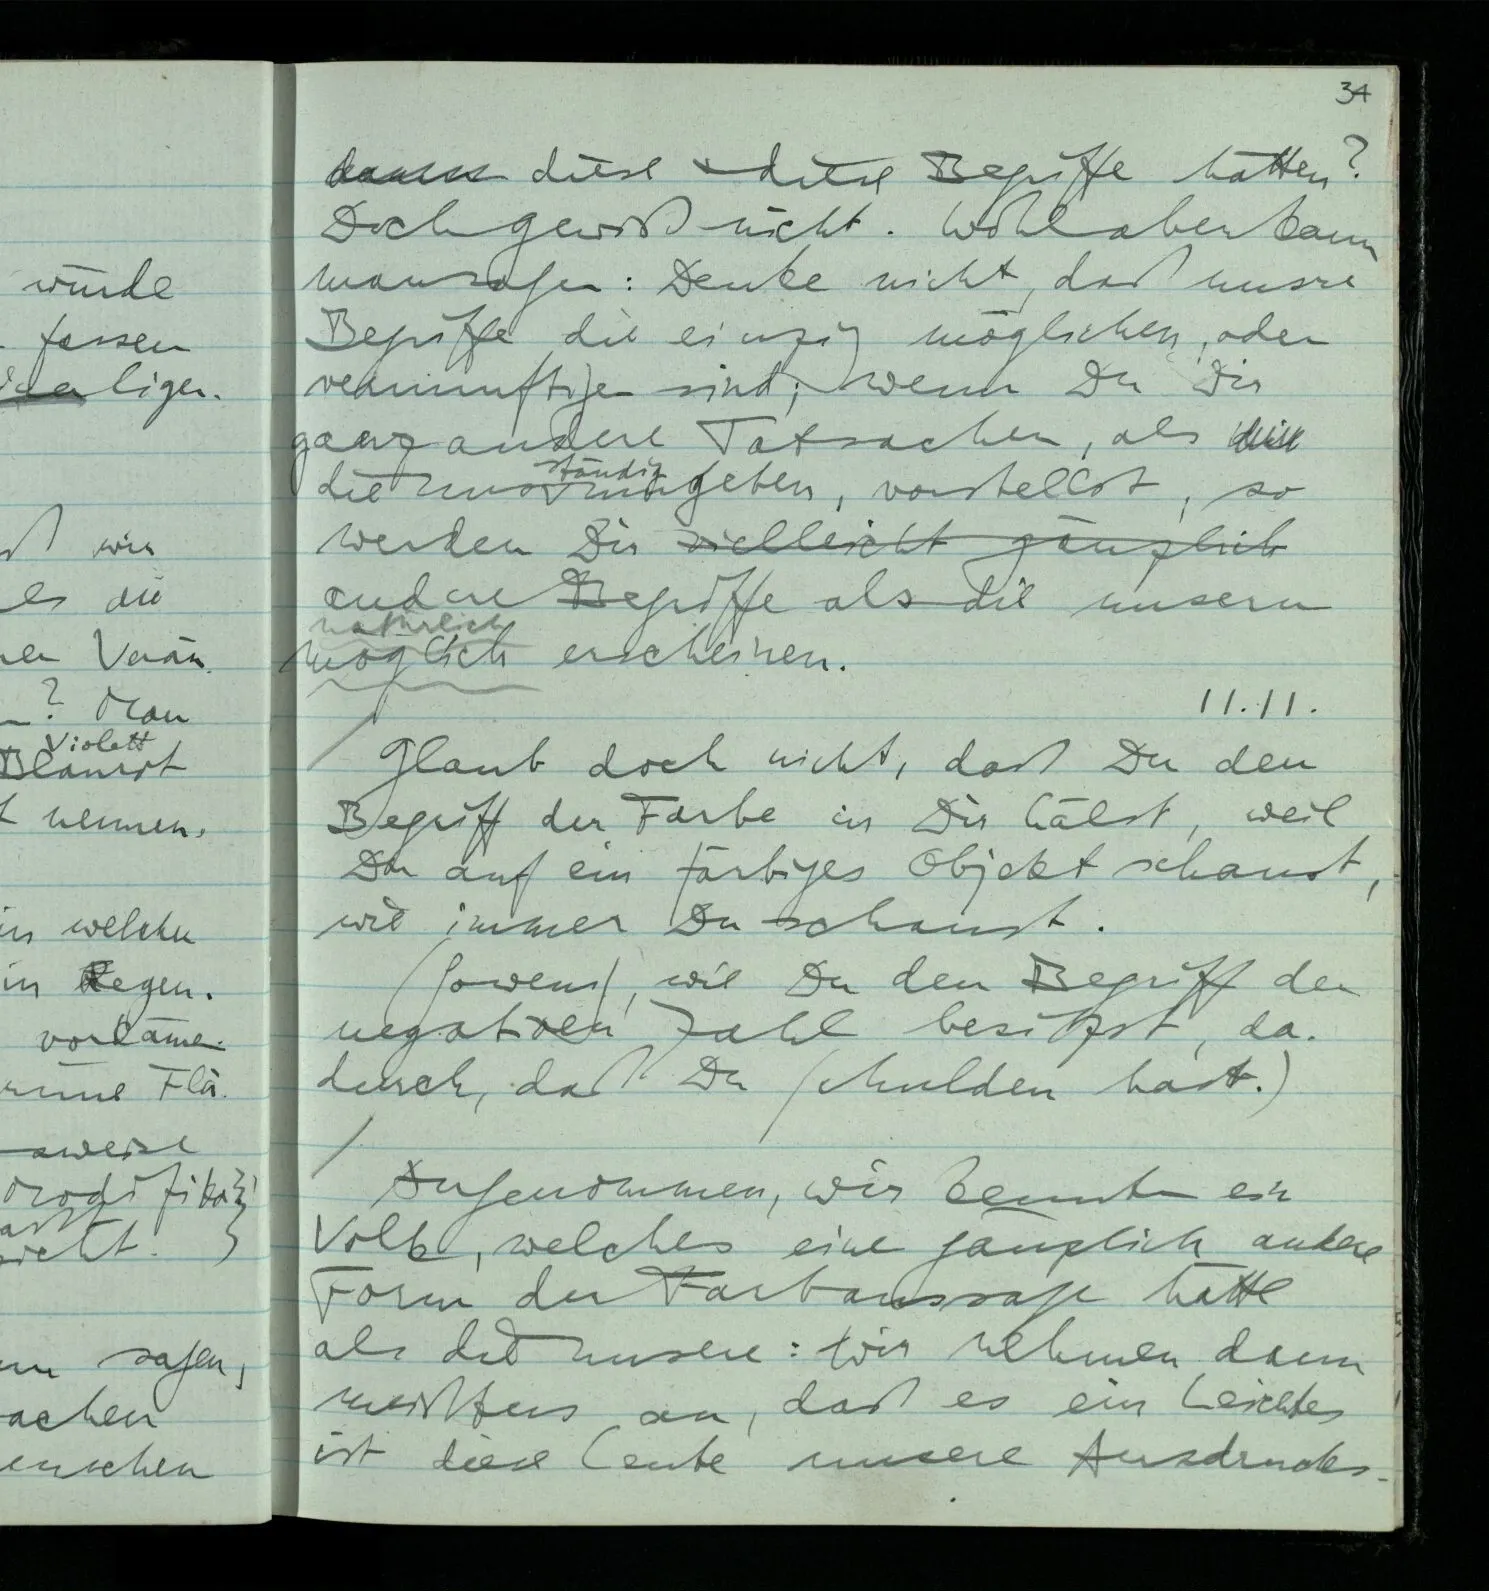 würde
fassen
ligen.
wir
es die
Verän
? Man
Violett
Blaurot
nennen.
welchen
in Regen.
vorkäme
Flä-
sweise
nicht.
sagen,
achen
enschen
34
diese & diese Begriffe hätten?
Doch gewiß nicht. Wohl aber kann
man sagen: Denke nicht, daß unsre
Begriffe die einzig möglichen, oder
vernünftigen sind; wenn Du Dir
ganz andere Tatsachen, als
ständig
die uns umgeben, vorstellst, so
werden Dir vielleicht gänzlich
andere Begriffe als die unsern
natürlich
möglich erscheinen.
11.11.
Glaub doch nicht, daß Du den
Begriff der Farbe in Dir hälst, weil
Du auf ein färbiges Objekt schaust,
wie immer Du schaust.
(Sowenig, wie Du den Begriff der
negativen Zahl besitzst, da-
durch, daß Du Schulden hast.)
Angenommen, wir kennten ein
Volk, welches eine gänzlich andere
Form der Farbaussage hätte
als die unsere: Wir nehmen dann
meistens an, daß es ein Leichtes
ist diese Leute unsere Ausdrucks-